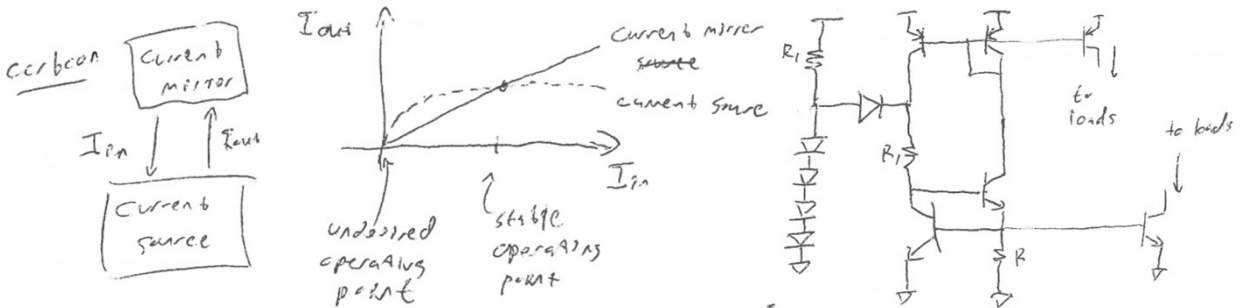 Current
mirror
Iin
Iout
Current
source
Iout
Current mirror
source
current source
Iin
undesired
operating
point
stable
operating
point
R1
R1
to
loads
R
to loads